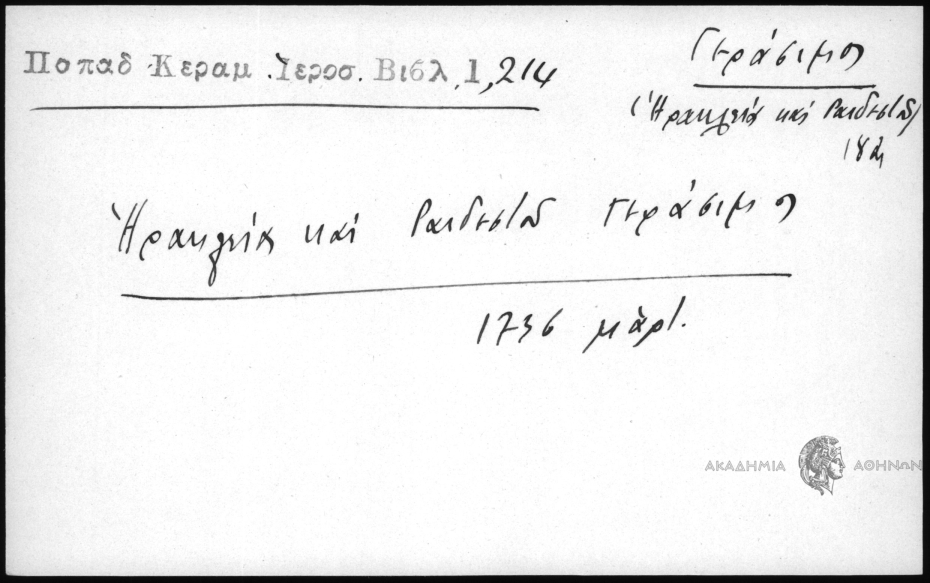 Παπαδ Κεραμ. Ἱεροσ. Βιβλ 1,214
Γεράσιμος
(Ἡρακλείας καί Ραιδεστοῦ)
Ἡρακλείας καί Ραιδεστοῦ Γεράσιμος
1736 μάρτ.
ΑΚΑΔΗΜΙΑ ΑΘΗΝΩΝ